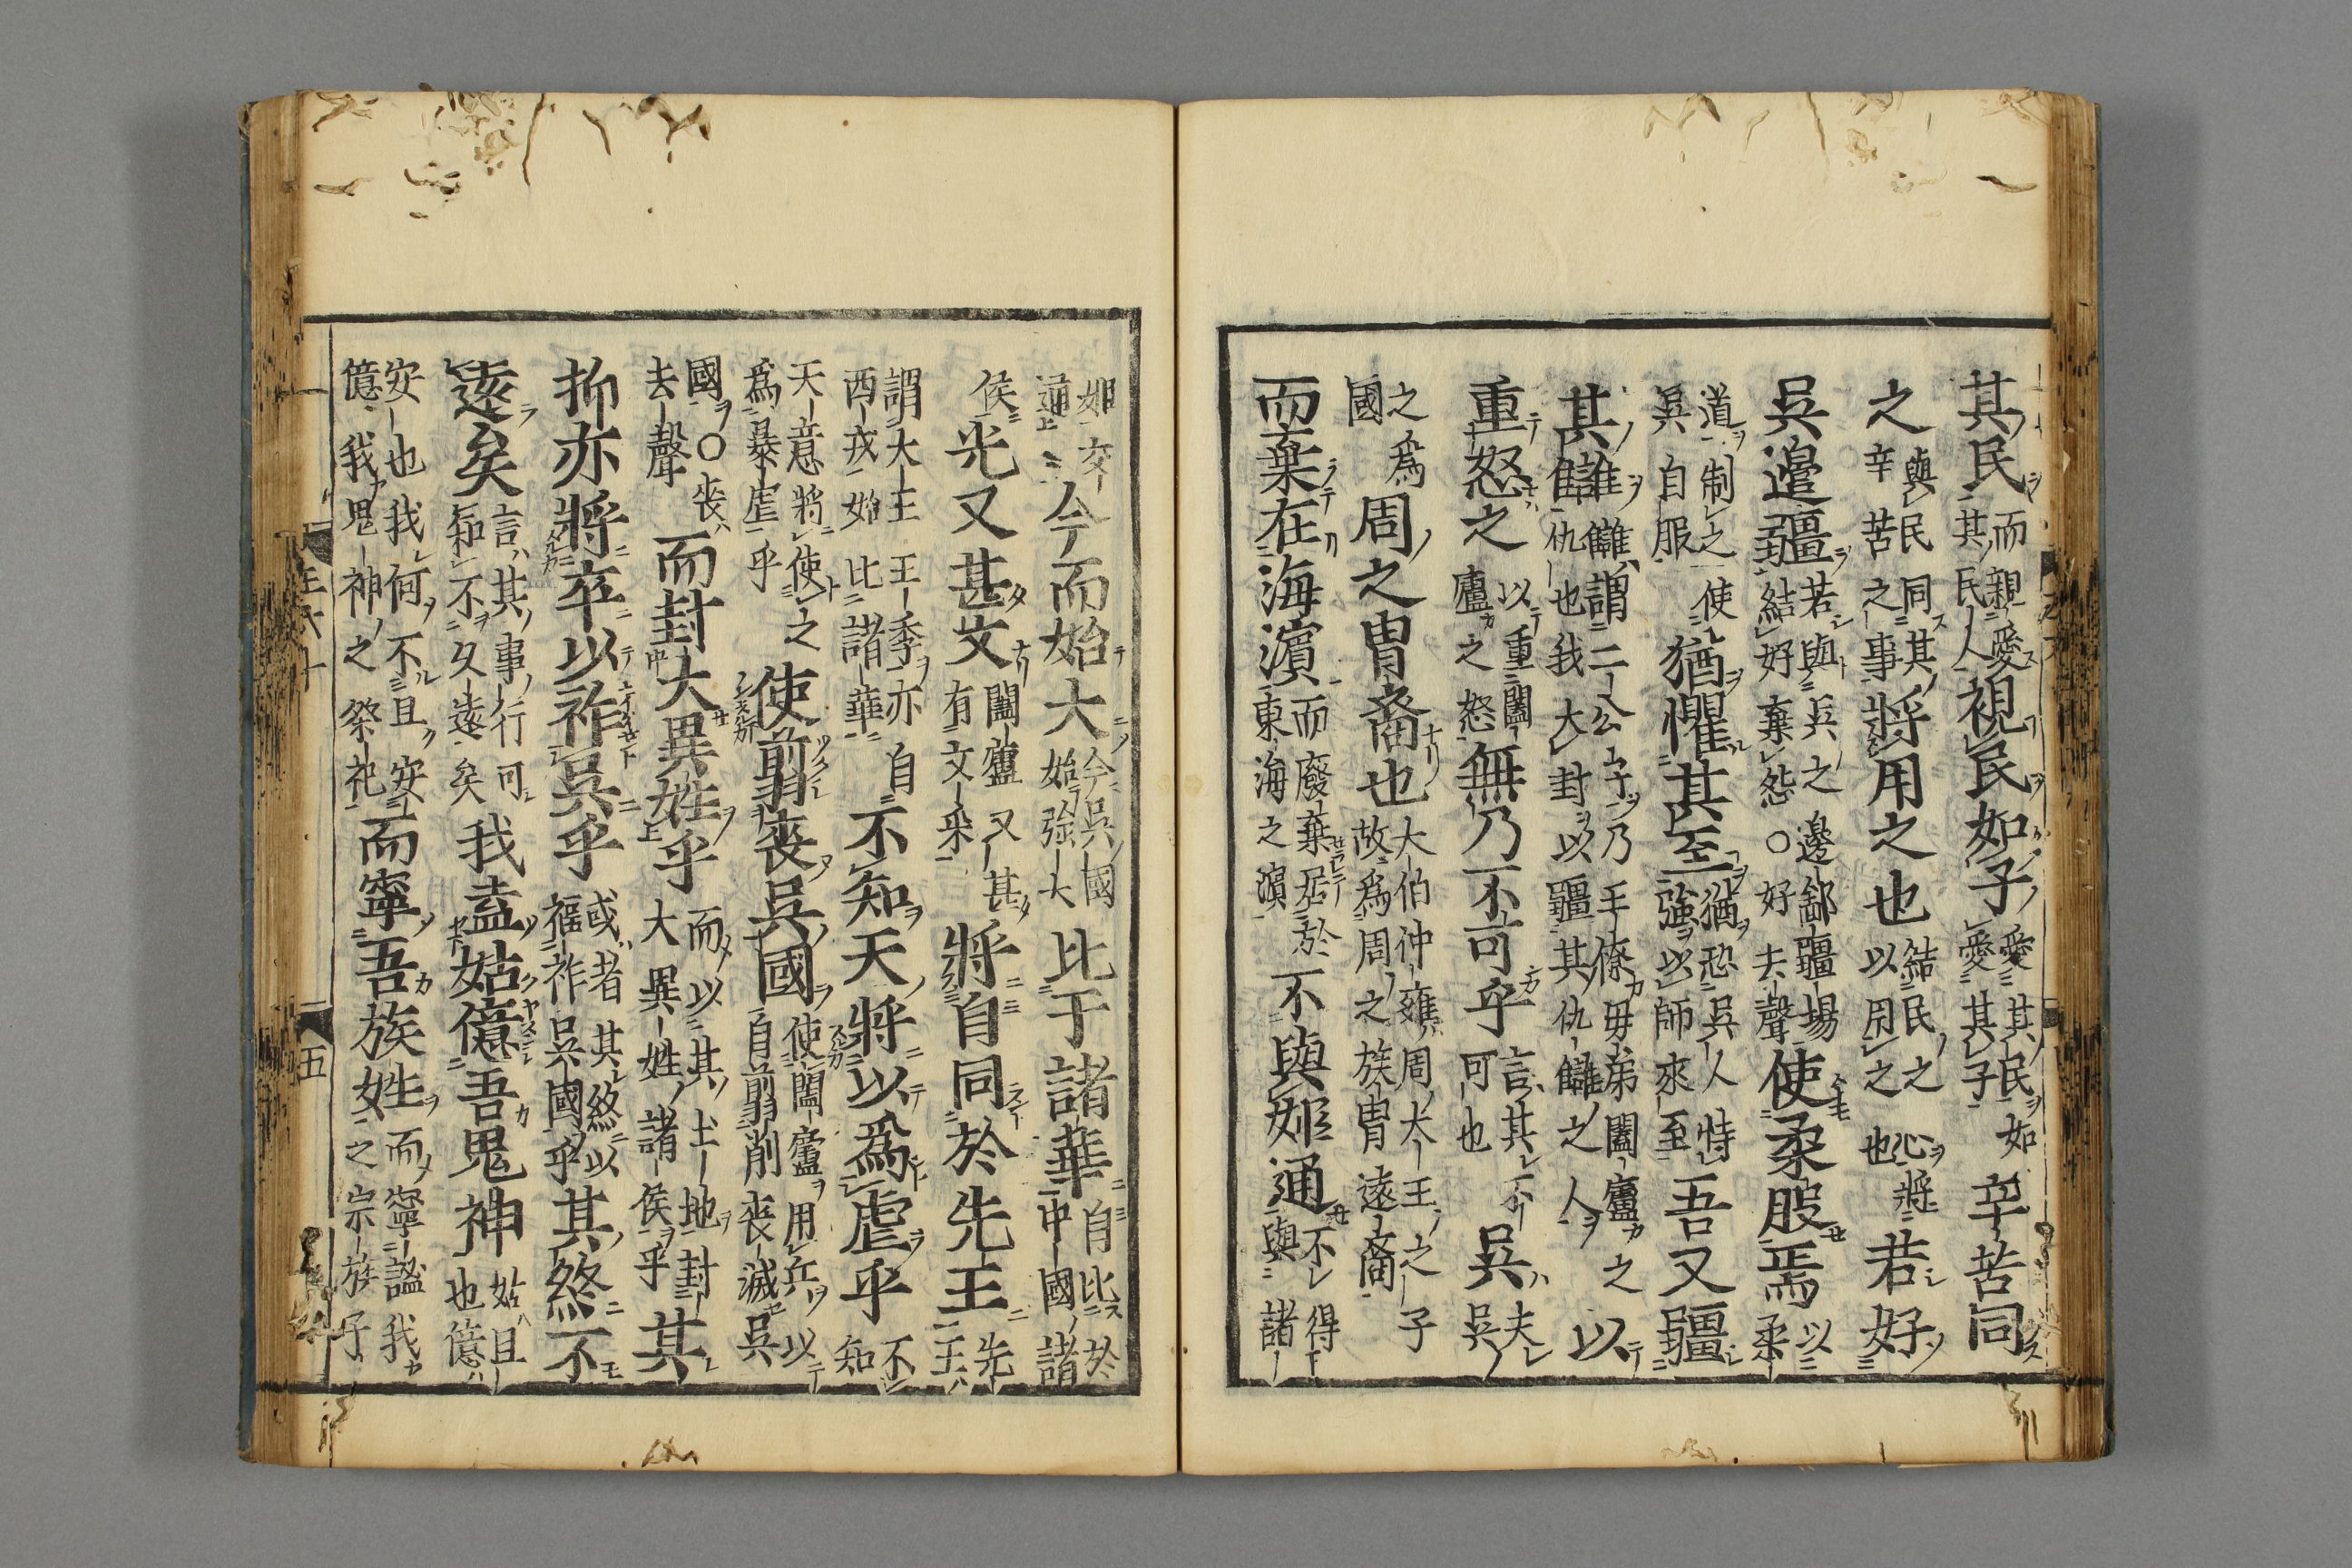 其民而親愛其民人視民如子愛其民如愛其子辛苦同
之與民同其辛苦之事將用之也結民之心將以用之也若好
吳邊疆若與兵之邊鄙疆場結好棄怨○好去聲使柔服焉以柔
道制之使吳自服猶懼其至猶恐吳人恃強以師來至吾又疆
其讎讎謂二公子乃王僚毋弟闔廬之仇也我大封以疆其仇讎之人以
重怒之以重闔廬之怒無乃不可乎言其不可也吳夫吳
之為國周之冑裔也大伯仲雍周大王之子故為周之族冑遠裔
而棄在海濱而廢棄居於東海之濱不與姬通不得與諸
姬交通今而始大今吳國始強大比于諸華自比於中國諸
侯光又甚文闔廬又甚有文采將自同於先王先王
謂大王王季亦自西戎始比諸華不知天將以為虐乎不知
天意將使之為暴虐乎使翦喪吳國使闔廬用兵以自翦削喪滅吳
國○喪去聲而封大異姓乎而以其土地封大異姓諸侯乎其
抑亦將卒以祚吳乎或者其終以福祚吳國乎其終不
遠矣言其事行可知不久遠矣我盍姑億吾鬼神姑且也億
安也我何不且安億我鬼神之祭祀而寧吾族姓而寧謐我之宗族子
五